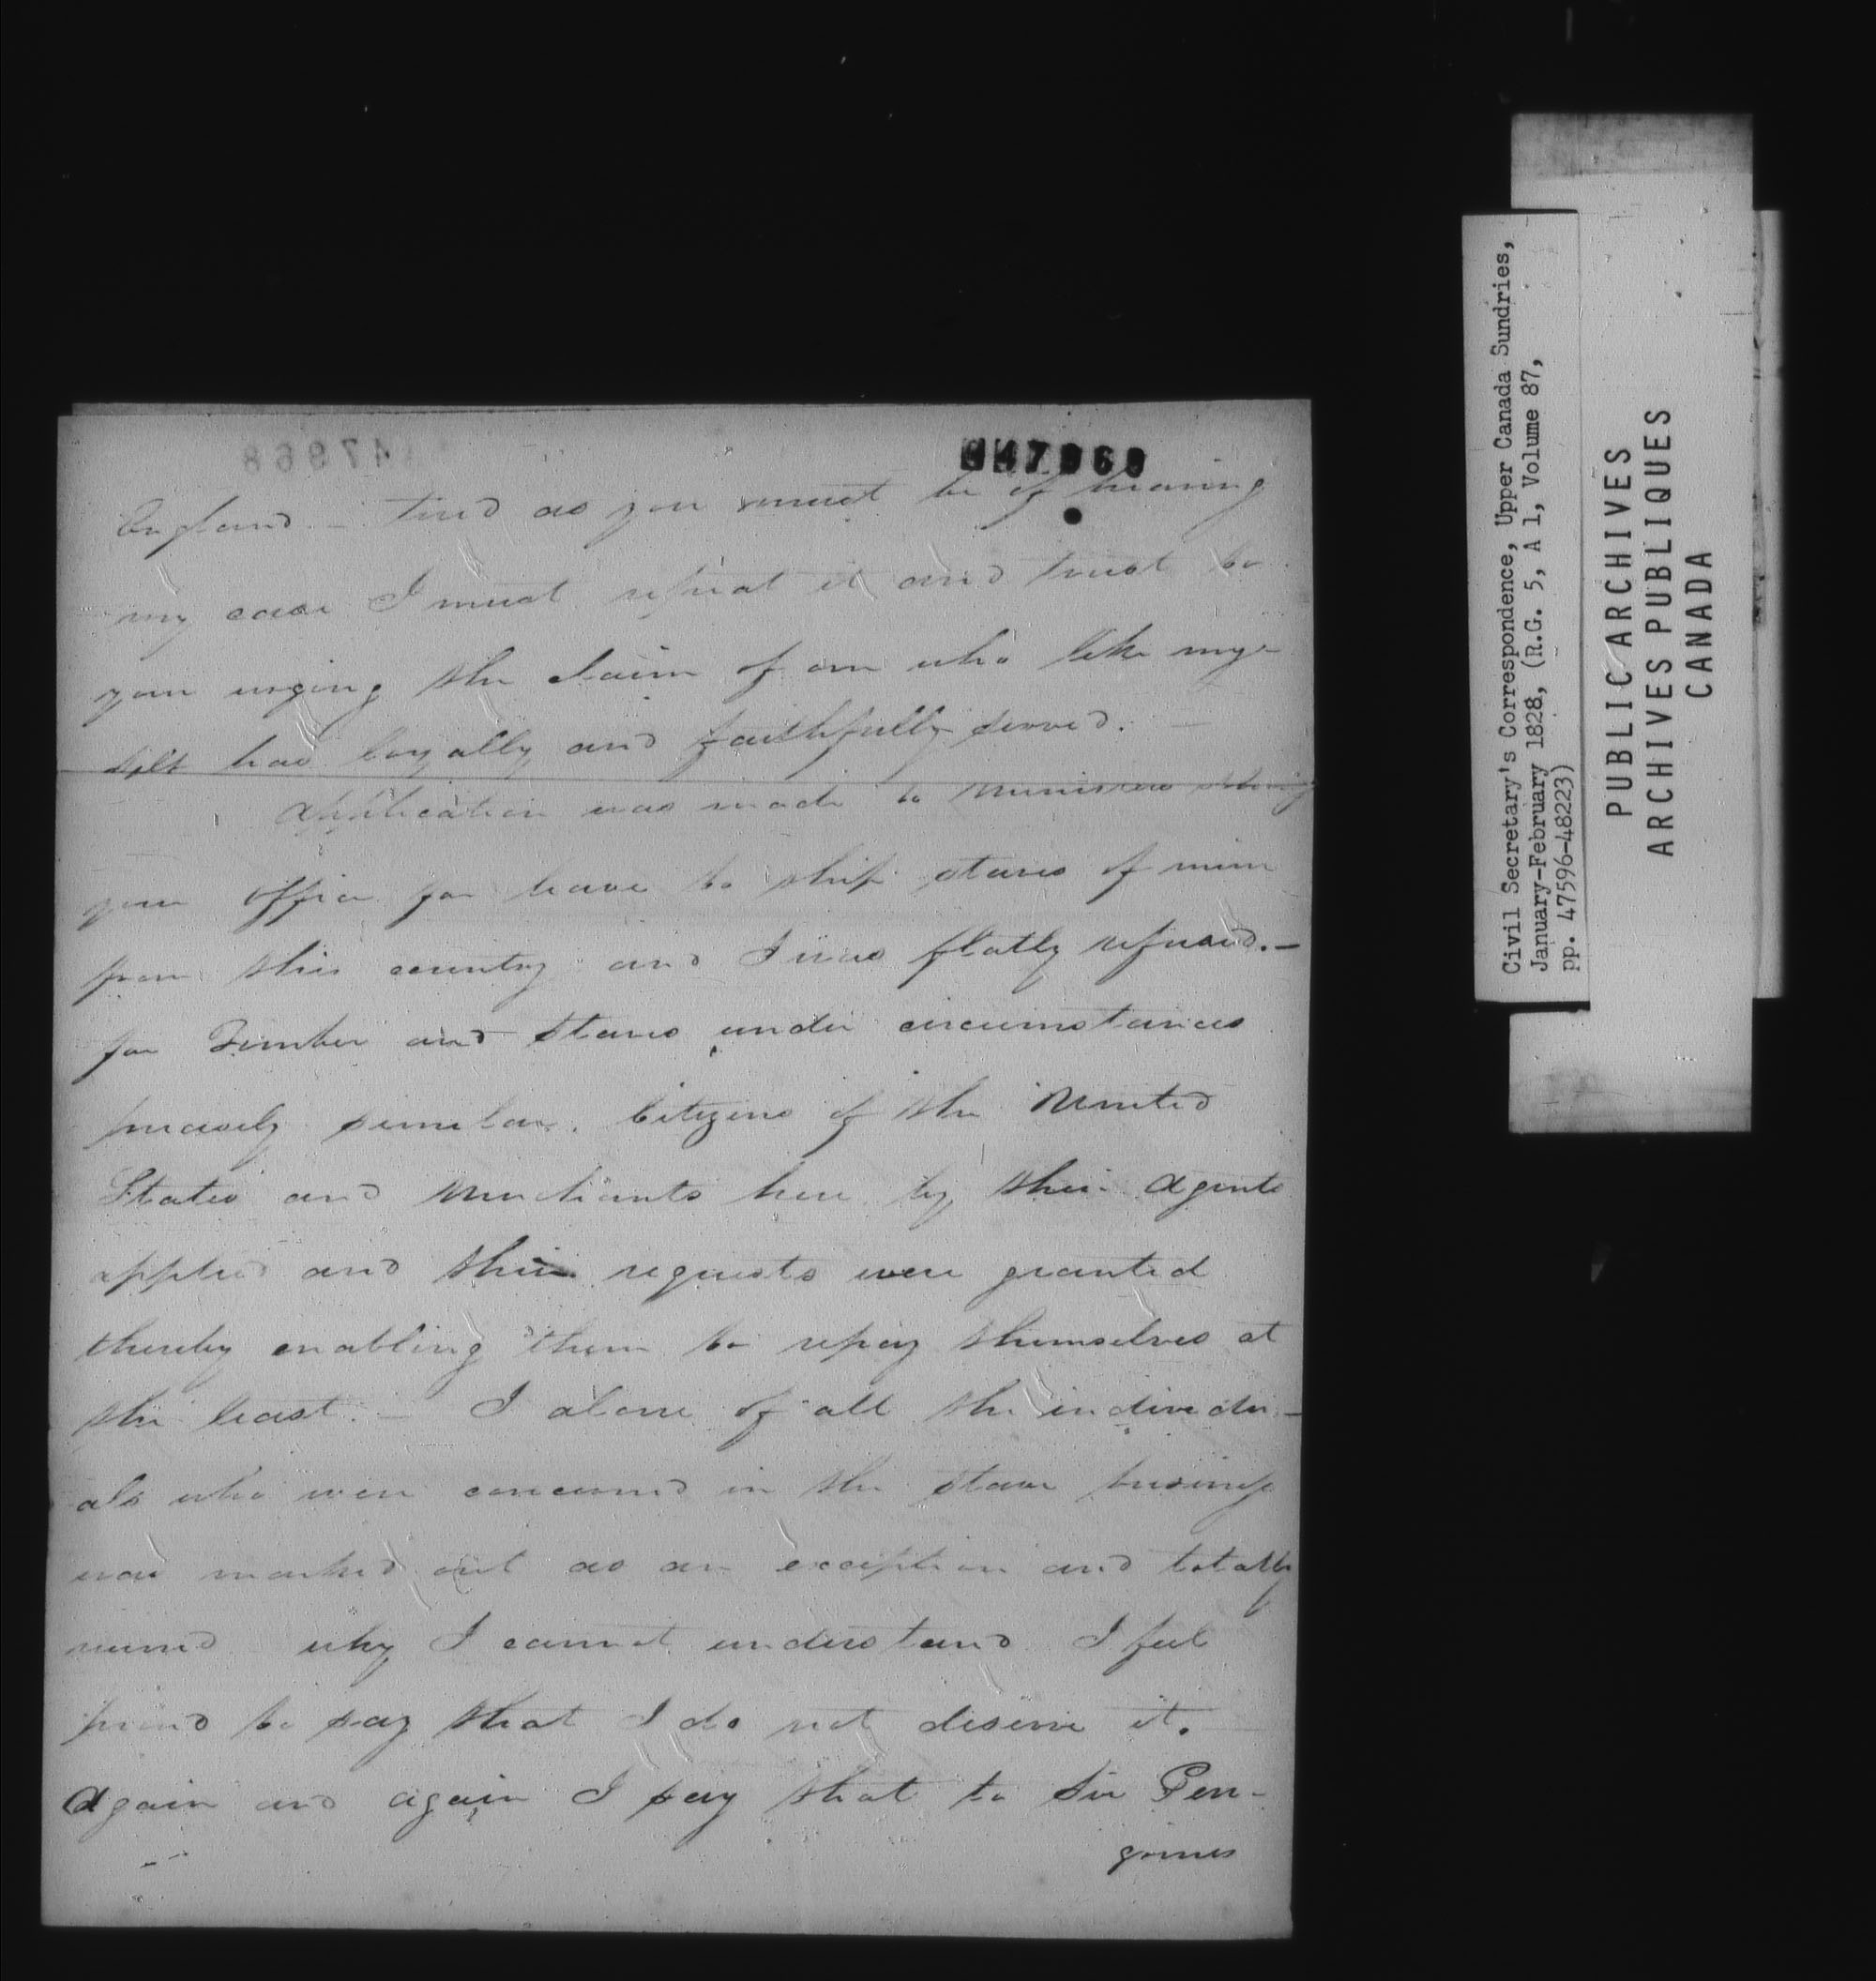 47968
47969
England – tired as you must be of hearing
my case I must repeat it and trust to
your urging the claim of one who like my-
self has loyally and faithfully served. –
Application was made to Ministers thro'
your office for leave to ship staves of mine
from this country and I was flatly refused. –
for Timber and Staves under circumstances
precisely similar. Citizens of the United
States and Merchants here by their Agents
applied and their requests were granted
thereby enabling them to repay themselves at
the least. – I alone of all the individu-
als who were concerned in the stave business
was marked out as an exception and totally
ruined why I cannot understand I feel
proud to say that I do not deserve it.
Again and again I say that to Sir Pen-
Civil Secretary's Correspondence, Upper Canada Sundries,
January-February 1828, (R.G. 5, A 1, Volume 87,
pp. 47596-48223)
PUBLIC ARCHIVES
ARCHIVES PUBLIQUES
CANADA